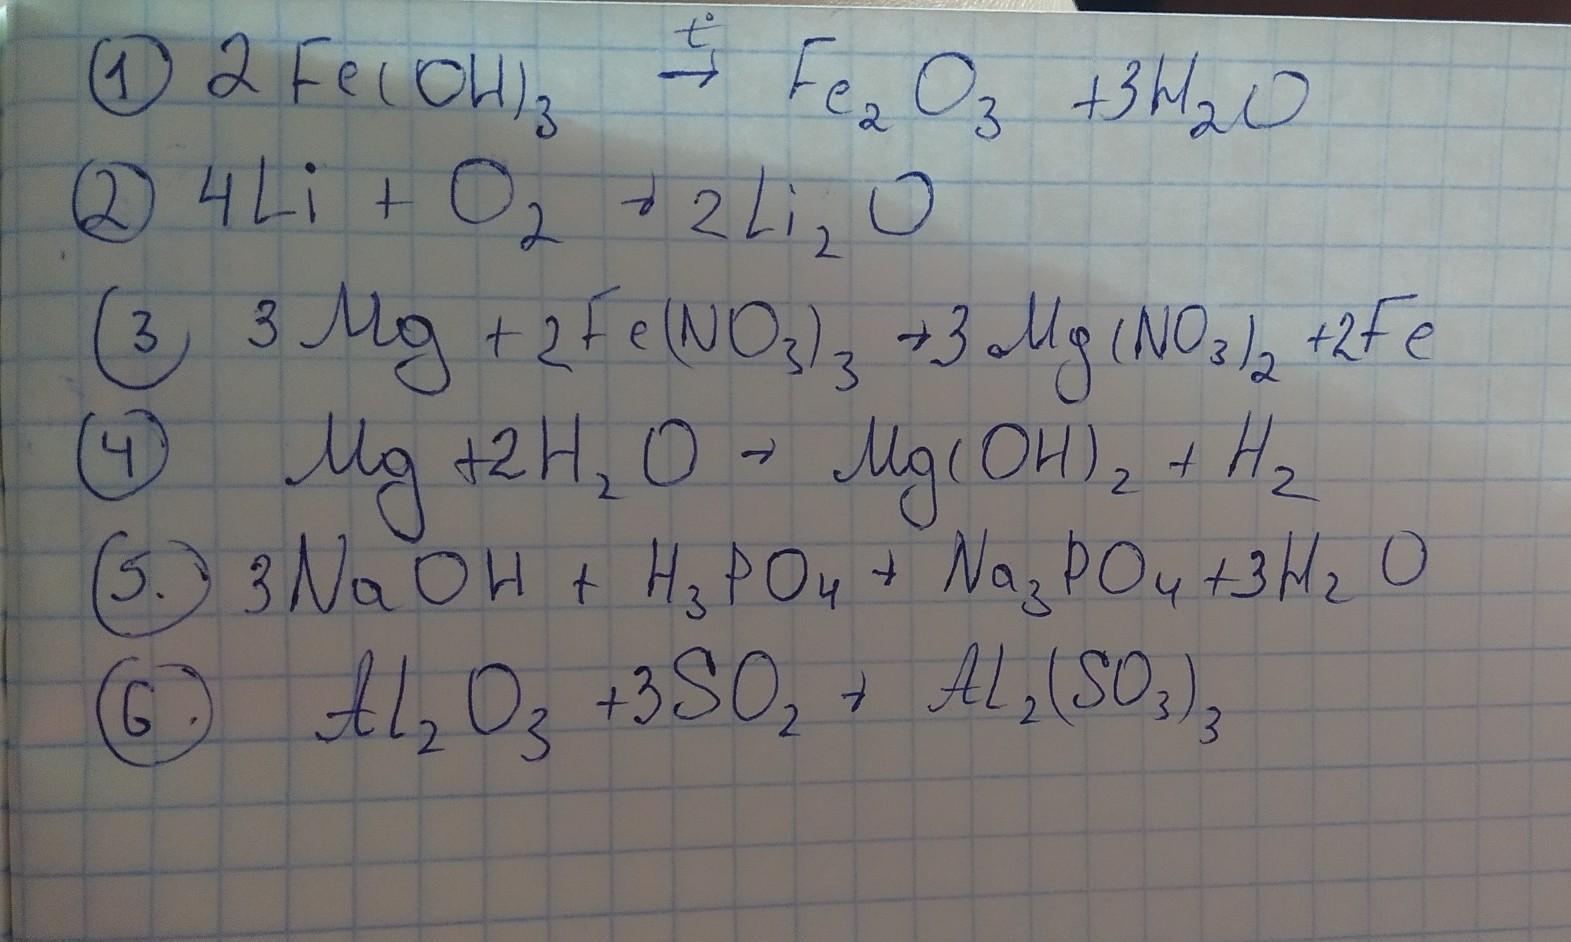 ① 2Fe(OH)₃ t°→ Fe₂O₃ +3H₂O
② 4Li + O₂ → 2Li₂O
③ 3Mg +2Fe(NO₃)₃ →3Mg(NO₃)₂ +2Fe
④ Mg +2H₂O → Mg(OH)₂ + H₂
⑤. 3NaOH + H₃PO₄ → Na₃PO₄ +3H₂O
⑥. Al₂O₃ +3SO₂ → Al₂(SO₃)₃